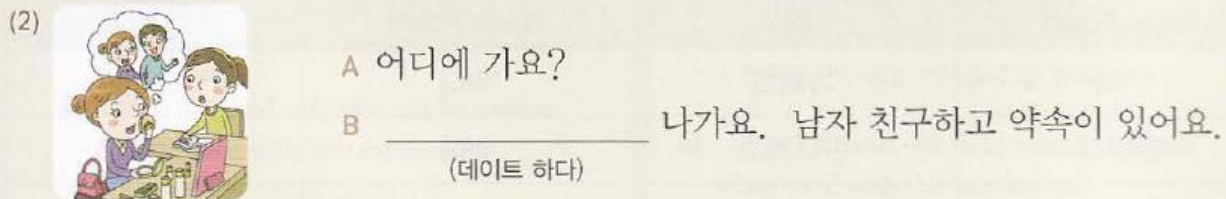 (2)
A 어디에 가요?
B ____________ 나가요. 남자 친구하고 약속이 있어요.
(데이트 하다)